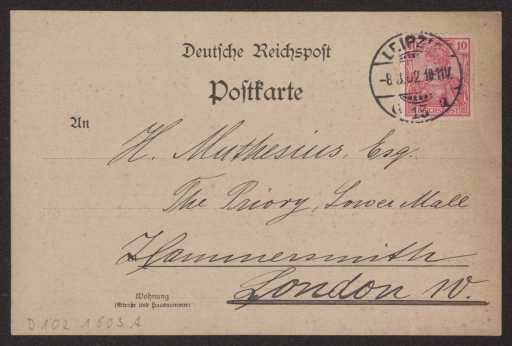 Deutsche Reichspost
Postkarte
LEIPZIG
-8.3.02.10-11V.
10
An
H. Muthesius, Esq.
The Priory, Lower Mall
in
Hammersmith
London W.
Wohnung
(Straße und Hausnummer)
D 102 1603 A